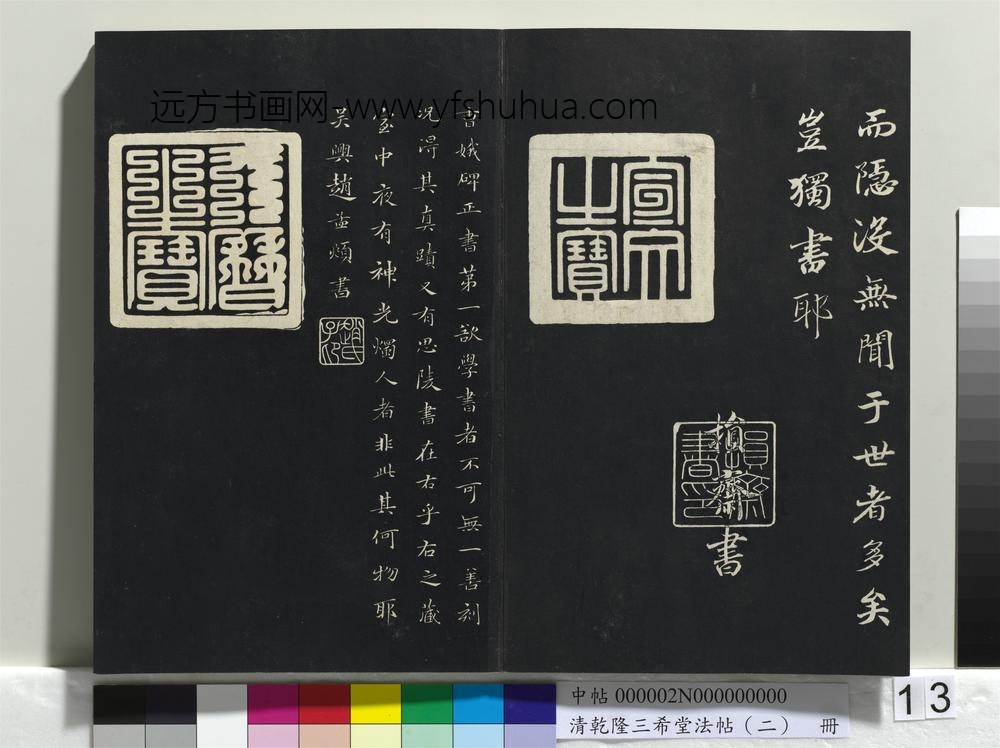 而隱沒無聞于世者多矣
豈獨書耶
損齋書
損齋書印
宣文之寶
曹娥碑正書第一欲學書者不可無一善刻
況得其真蹟又有思陵書在右乎右之藏
室中夜有神光燭人者非此其何物耶
吳興趙孟頫書
趙氏子昂
天曆之寶
远方书画网-www.yfshuhua.com
中帖 000002N000000000
清乾隆三希堂法帖(二) 冊
13